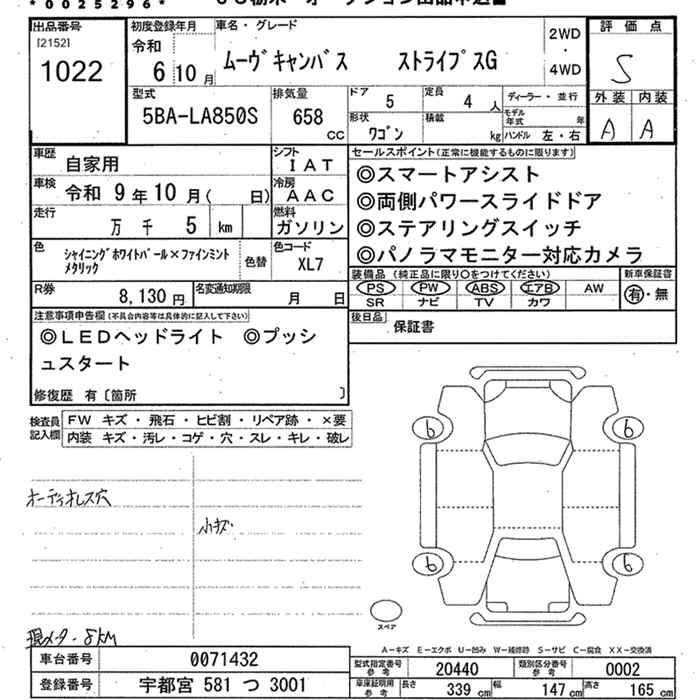 *0025296*
出品番号
[2152]
1022
初度登録年月
令和
6 10 月
車名・グレード
ムーヴキャンバス ストライプスG
2WD
・
4WD
評価点
S
外装 内装
A A
型式
5BA-LA850S
排気量
658
cc
ドア 5
定員 4 人
形状 ワゴン
積載 kg
ディーラー・並行
モデル年式 年
ハンドル 左・右
車歴 自家用
シフト IAT
車検 令和 9年 10月( 日)
冷房 AAC
走行 万 千 5 km
燃料 ガソリン
色 シャイニングホワイトパール×ファインミント
メタリック
色替
色コード XL7
R券 8,130 円
名変通知期限 月 日
セールスポイント(正常に機能するものに限ります)
◎スマートアシスト
◎両側パワースライドドア
◎ステアリングスイッチ
◎パノラマモニター対応カメラ
装備品(純正品に限り○をつけてください)
新車保証書
PS PW ABS エアB AW
有・無
SR ナビ TV カワ
後日品 保証書
注意事項申告欄(不具合内容等は具体的に記入して下さい)
◎LEDヘッドライト ◎プッシ
ュスタート
修復歴 有〔箇所 〕
検査員
記入欄
FW キズ・飛石・ヒビ割・リペア跡・×要
内装 キズ・汚レ・コゲ・穴・スレ・キレ・破レ
オーディオレス穴
小キズ
現メーター・8km
6 6
6 6
スペア
A−キズ E−エクボ U−凹み W−補修跡 S−サビ C−腐食 XX−交換済
車台番号 0071432
登録番号 宇都宮 581 つ 3001
型式指定番号
参考
20440
類別区分番号
参考
0002
車庫証明用
参考
長さ 339 cm
幅 147 cm
高さ 165 cm